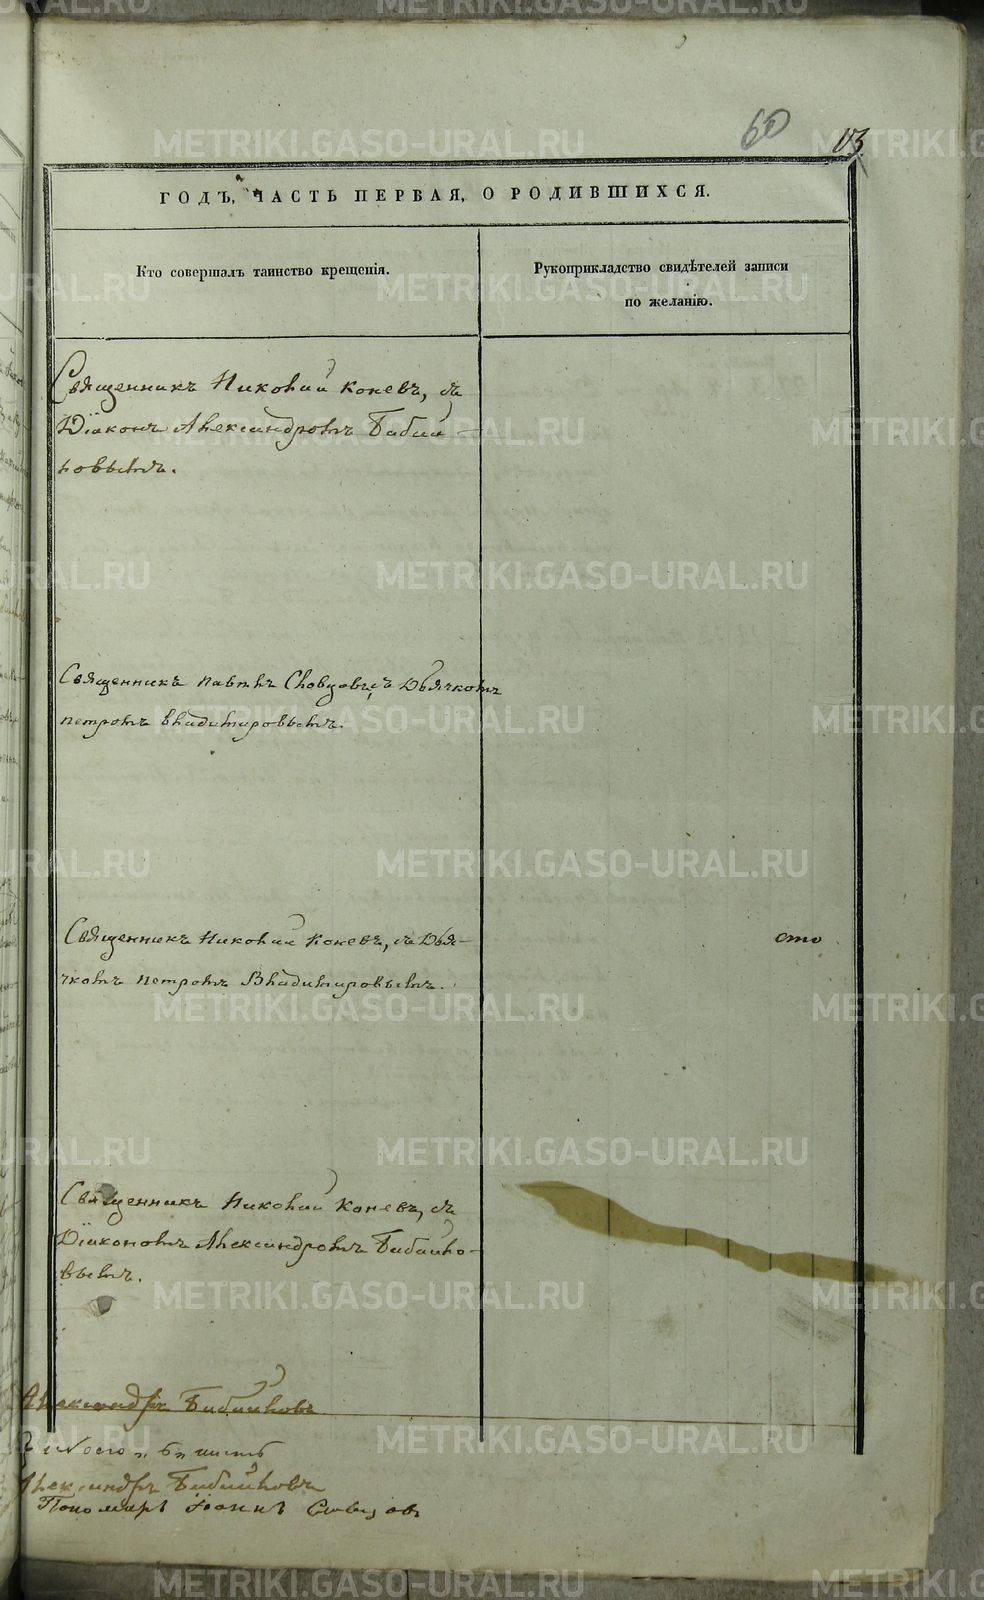 60
ГОДЪ, ЧАСТЬ ПЕРВАЯ, О РОДИВШИХСЯ.
Кто совершалъ таинство крещенія.
Рукоприкладство свидѣтелей записи
по желанію.
Священникъ Николай Коневъ, съ
Діакон Александромъ Бибик
овымъ.
Священникъ Павелъ Словцовъ, съ Дьячкомъ
Петромъ Владимировымъ.
Священникъ Николай Коневъ, съ Дья-
чкомъ Петромъ Владимировымъ.
сто
Священникъ Николай Коневъ, съ
Діакономъ Александромъ Бибико-
вымъ.
Александръ Бибиковъ
Александръ Бибиковъ
Пономарь Іоаннъ
METRIKI.GASO-URAL.RU